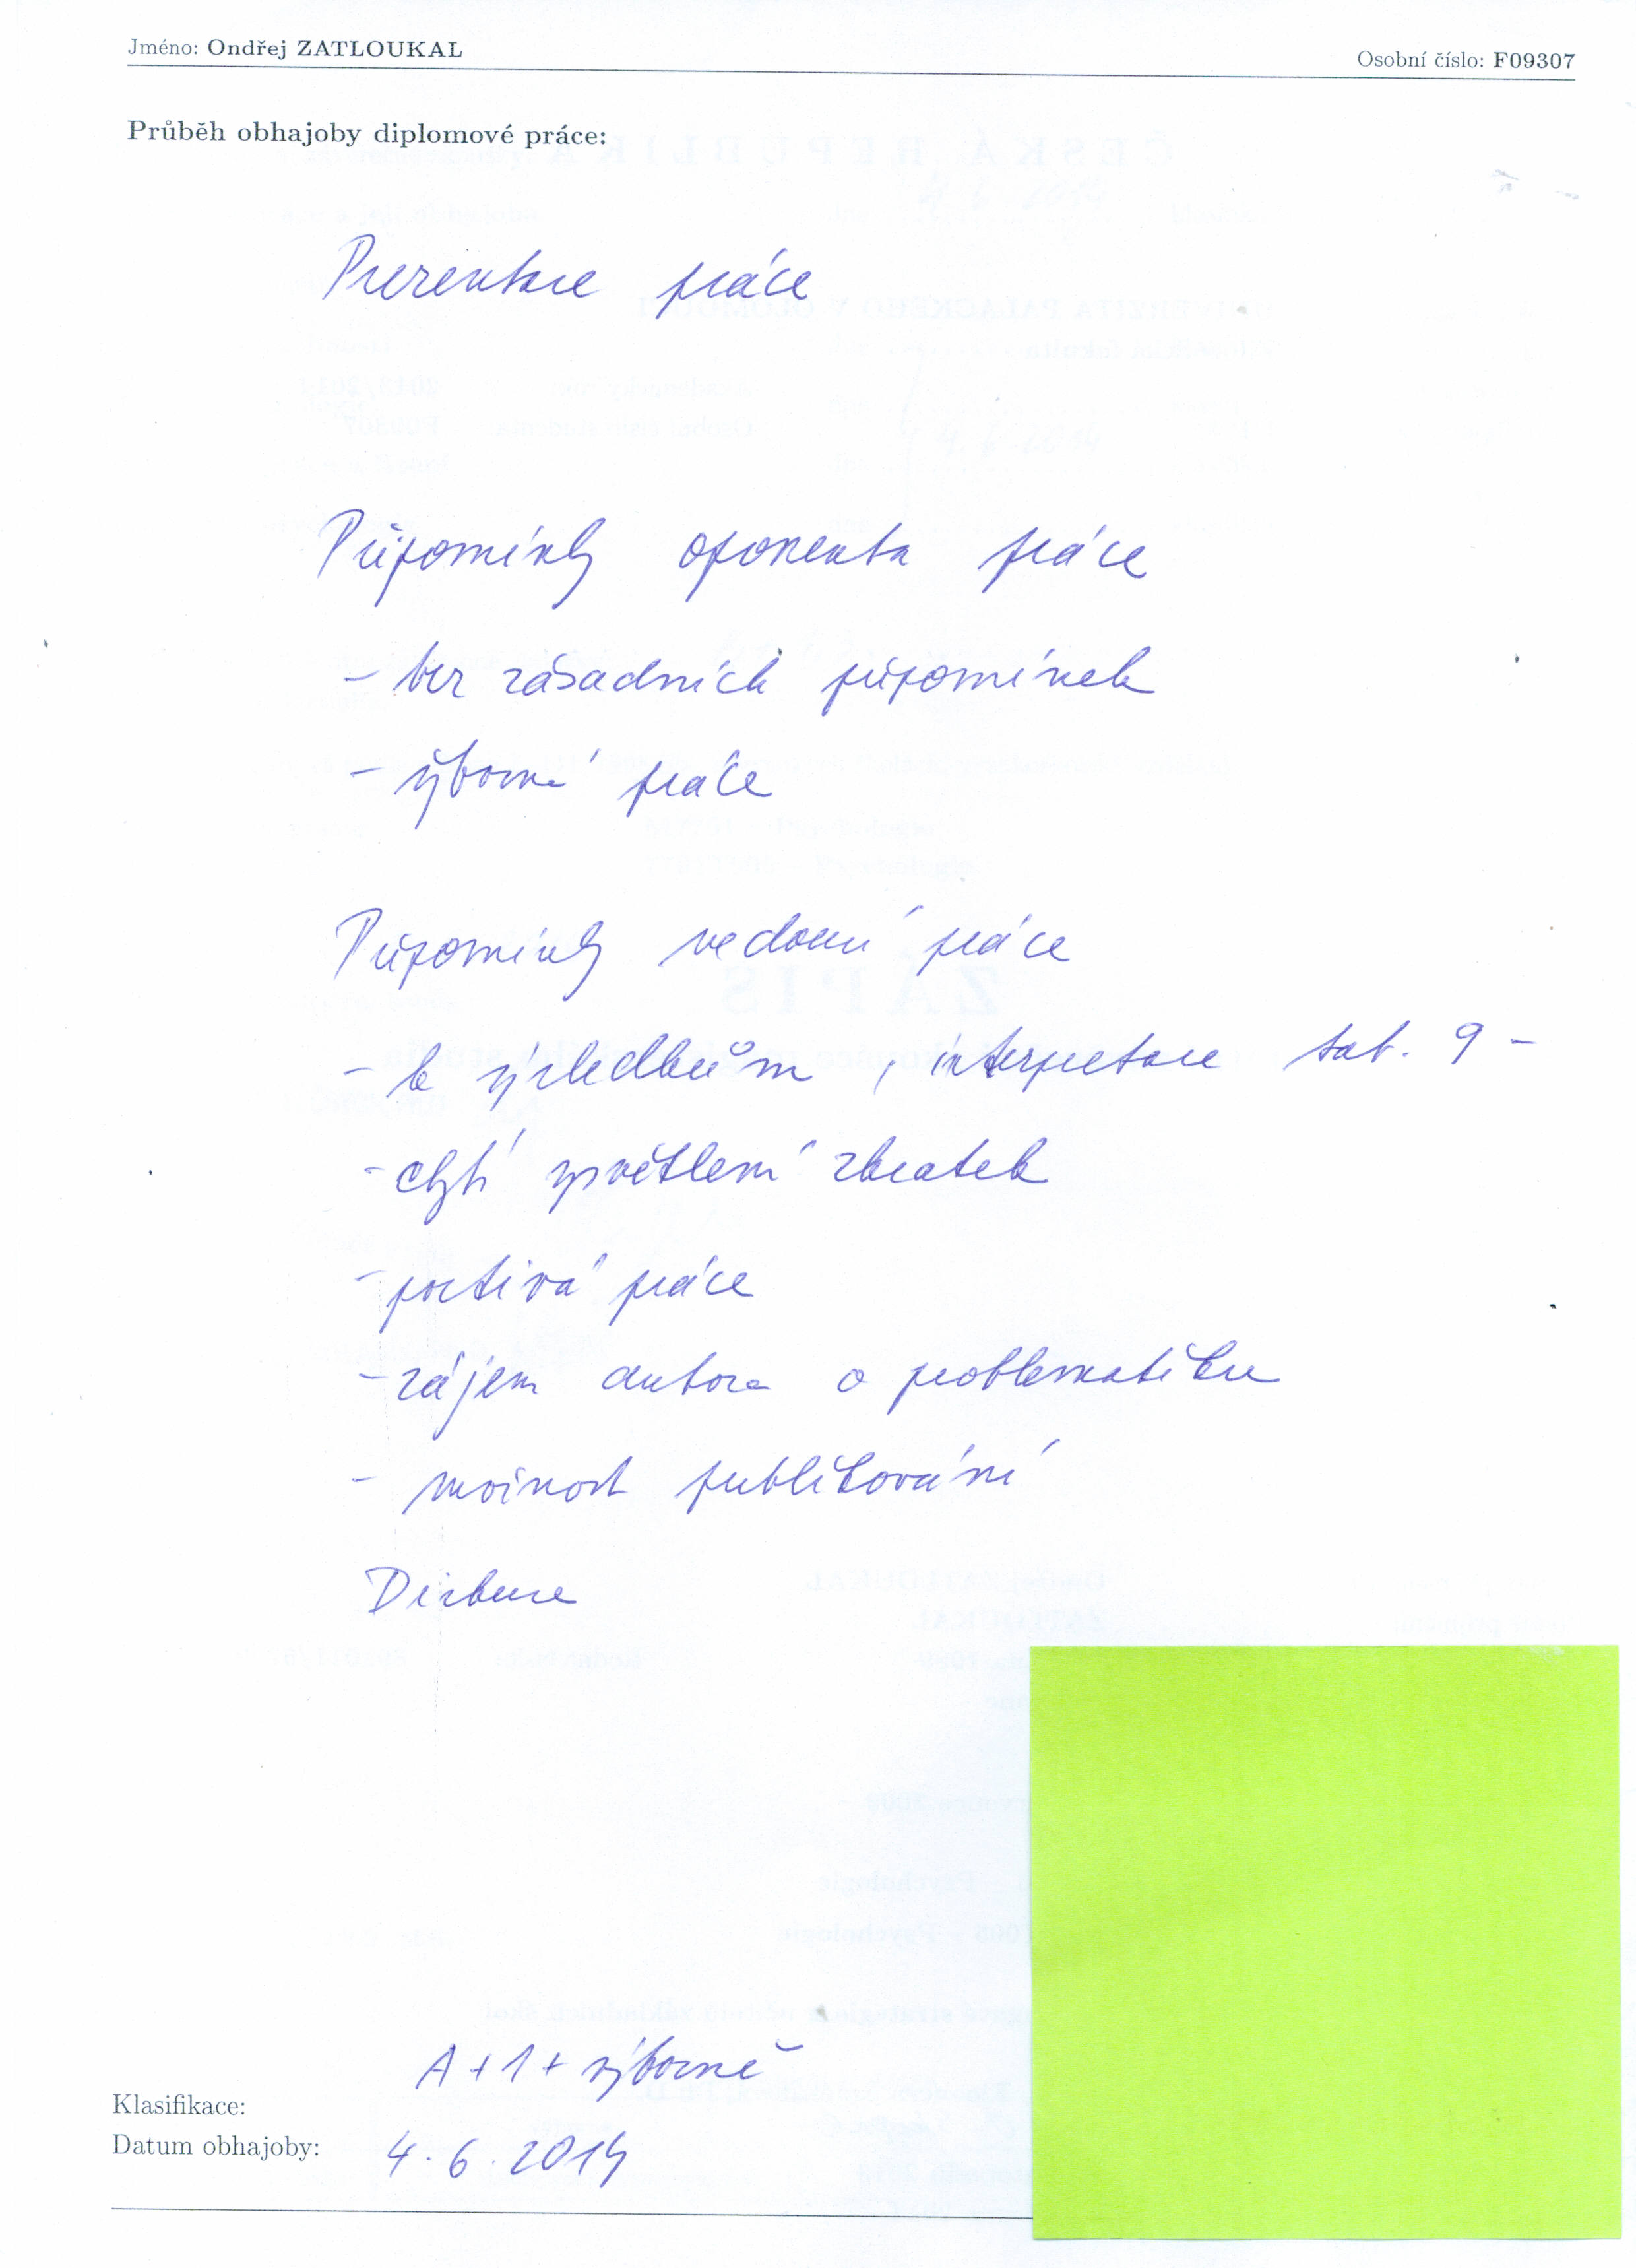 Jméno: Ondřej ZATLOUKAL
Osobní číslo: F09307
Průběh obhajoby diplomové práce:
Prezentace práce
Připomínky oponenta práce
- bez zásadních připomínek
- výborná práce
Připomínky vedoucí práce
- k výsledkům, interpretace tab. 9 -
- chybí vysvětlení zkratek
- poctivá práce
- zájem autora o problematiku
- možnost publikování
Diskuse
A + 1 + výborně
Klasifikace:
Datum obhajoby: 4. 6. 2014